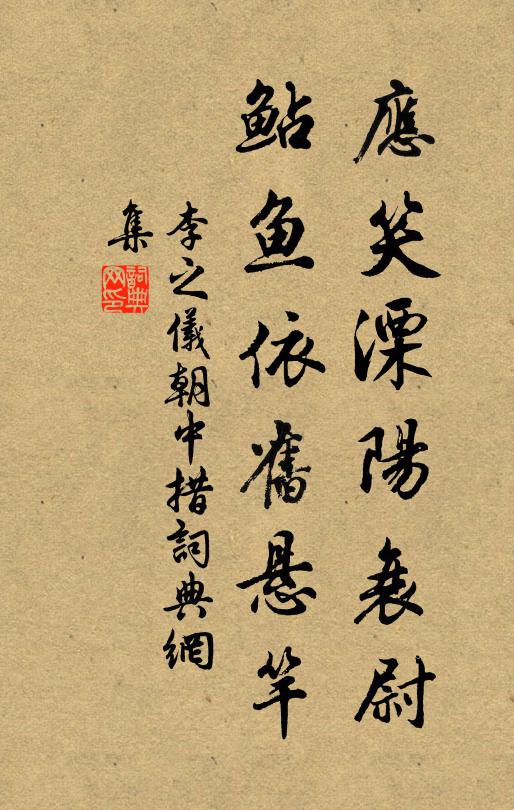 應笑溧陽衰尉
鲇鱼依舊悬竿
李之儀朝中措詞典網
集
詞典网印